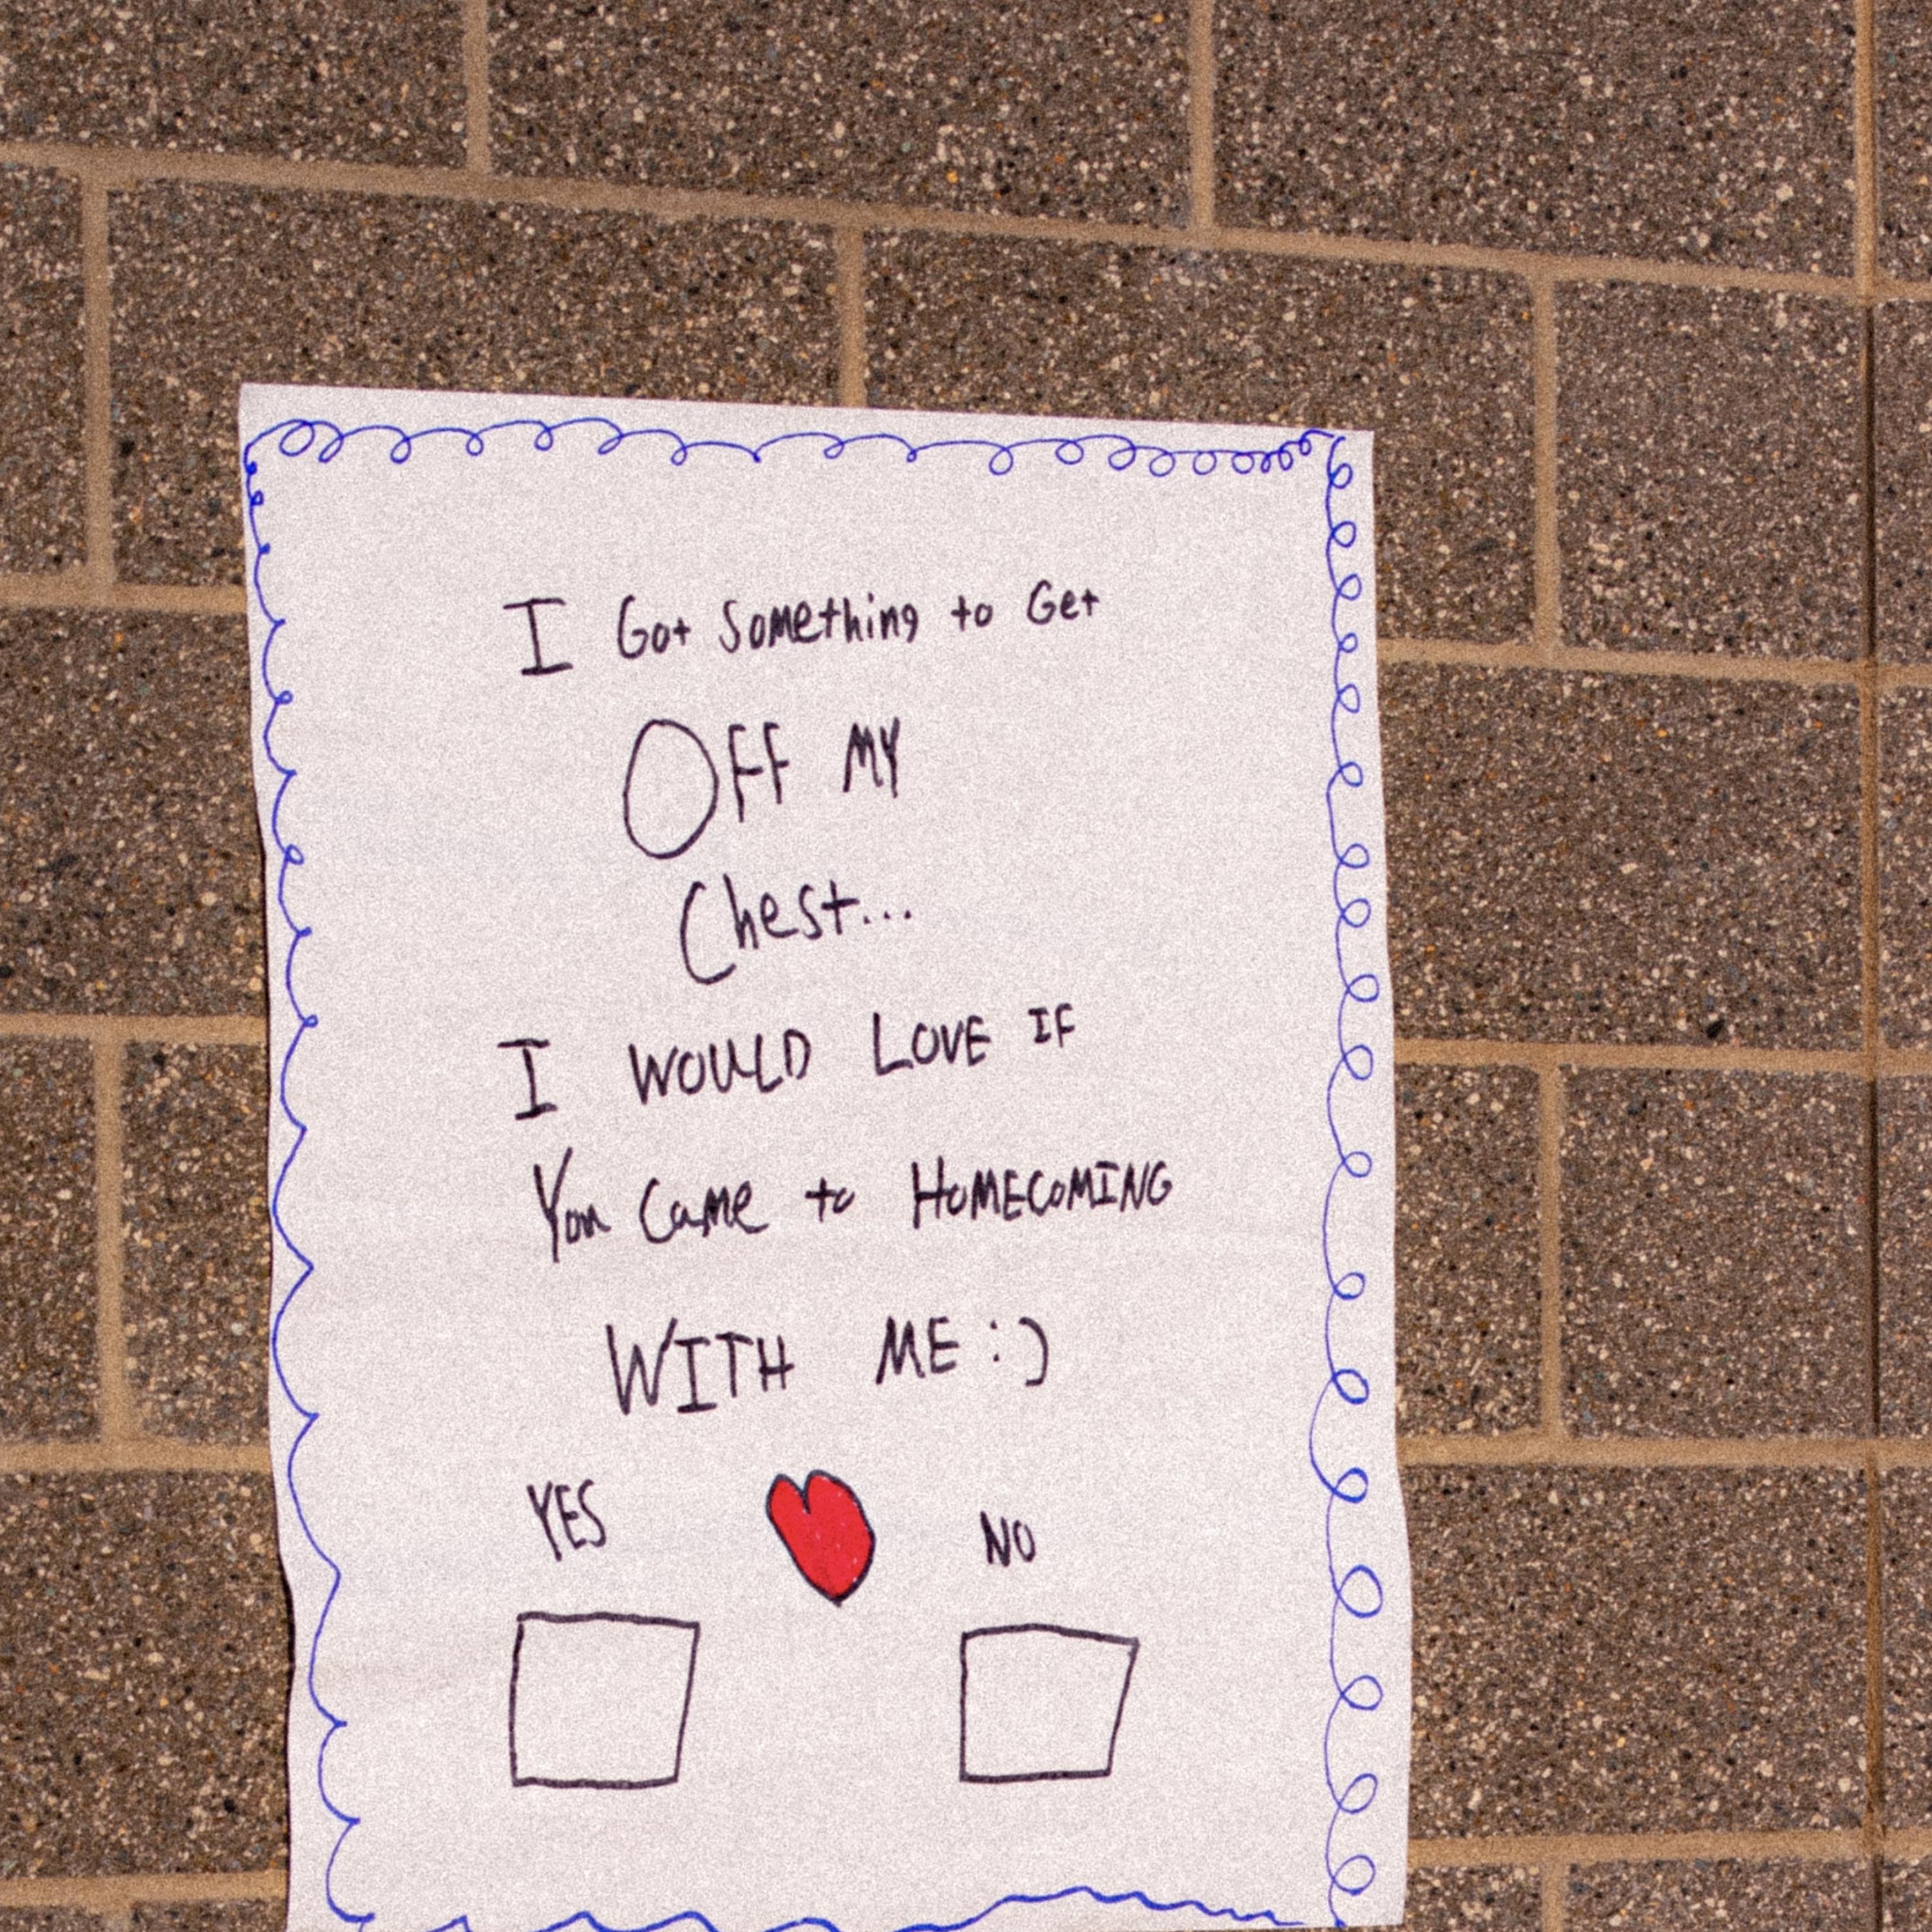 I Got Something to Get
OFF MY
Chest...
I WOULD LOVE IF
You Came to HOMECOMING
WITH ME :)
YES NO